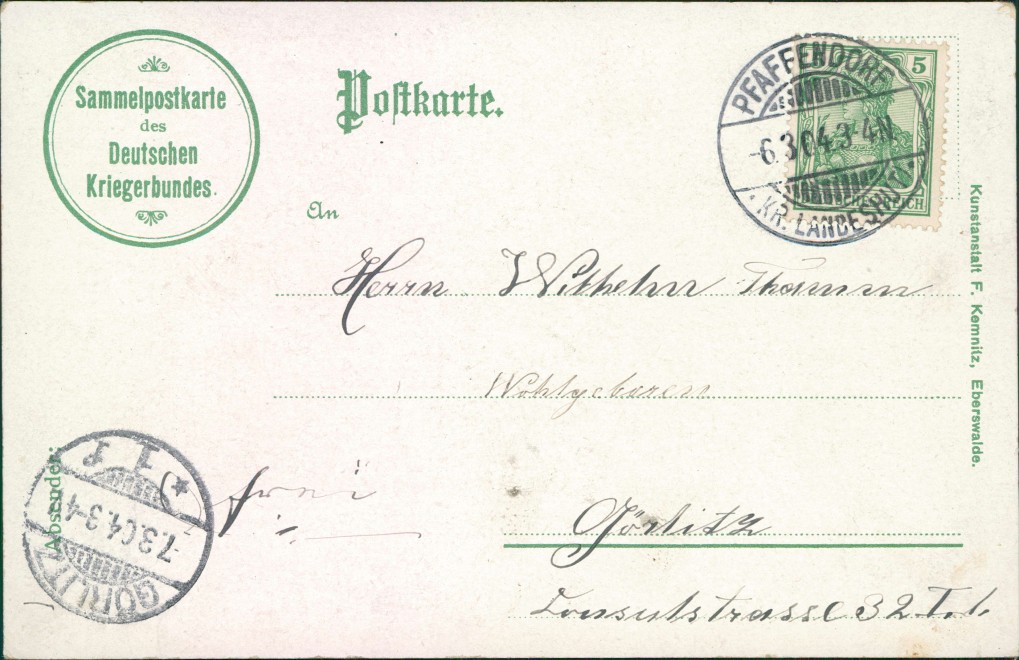 Sammelpostkarte
des
Deutschen
Kriegerbundes.
Postkarte.
PFAFFENDORF
-6.3.04.3-4N.
(KR. LANDESHUT)
5
REICH
An
Herrn Wilhelm Thamm
Wohlgeboren
frei
Görlitz
Consulstrasse 32 I. l.
Absender:
GÖRLITZ
-7.3.04.3-4
* 1 f
Kunstanstalt F. Kemnitz, Eberswalde.